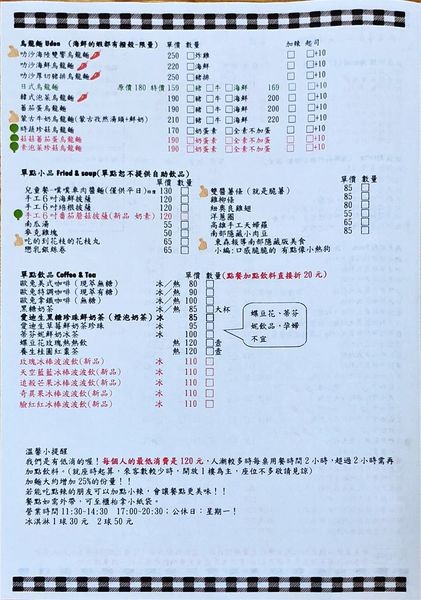 烏龍麵 Udon (海鮮的蝦都有撥殼-限量) 單價 數量 加辣 起司
叻沙海陸雙響烏龍麵 250 □炸雞 □+10
叻沙海鮮烏龍麵 220 □海鮮 □+10
叻沙厚切豬排烏龍麵 250 □豬排 □+10
日式烏龍麵 原價 180 特價 159 □豬 □牛 □海鮮 169 □ □+10
韓式泡菜烏龍麵 190 □豬 □牛 □海鮮 □+10
蕃茄蛋烏龍麵 190 □豬 □牛 □海鮮 □ □+10
蒙古牛奶烏龍麵(蒙古孜然湯頭+鮮奶) 210 □豬 □牛 □海鮮 □ □+10
時蔬珍菇烏龍麵 170 □奶蛋素 □全素不加蛋 □ □+10
菇菇蕃茄蛋烏龍麵 190 □奶蛋素 □全素不加蛋 □ □+10
素泡菜珍菇烏龍麵 190 □奶蛋素 □全素不加蛋 □+10
單點小品 Fried & soup(單點恕不提供自助飲品)
單價 數量
兒童餐-噗噗車肉醬麵(僅供平日) 130 □
手工6吋海鮮披薩 120 □
手工6吋培根披薩 120 □
手工6吋蕃茄蘑菇披薩(新品 奶素) 120 □
南瓜湯 55 □
麥克雞塊 50 □
吃的到花枝的花枝丸 65 □
戀乳銀絲卷 65 □
雙醬薯條 (就是脆薯) 85 □
雞柳條 85 □
細奧良雞翅 85 □
洋蔥圈 60 □
高雄手工天婦羅 85 □
南部隱藏小肉豆 85 □
東森報導南部隱藏版美食
小編:口感脆脆的 有點像小熱狗
單點飲品 Coffee & Tea 單價 數量(點餐加點飲料直接折 20 元)
歐兔美式咖啡 (現萃無糖) 冰/熱 80 □
歐兔特調咖啡 (現萃有糖) 冰/熱 90 □
歐兔拿鐵咖啡 (無糖) 冰/熱 100 □
黑糖奶茶 冰/熱 85 □大杯
愛迪生黑糖珍珠鮮奶茶 (燈泡奶茶) 冰 100 □
愛迪生草莓鮮奶茶珍珠 冰 95 □
蒂芬妮鮮奶冰茶 冰 100 □
蝶豆花玫瑰熱熱飲 熱 120 □壺
養生桂圓紅棗茶 熱 120 □壺
玫瑰冰棒波波飲(新品) 冰 110 □
天空藍藍冰棒波波飲(新品) 冰 110 □
追殺芒果冰棒波波飲(新品) 冰 110 □
奇異果冰棒波波飲(新品) 冰 110 □
臉紅紅冰棒波波飲(新品) 冰 110 □
蝶豆花、蒂芬
妮飲品，孕婦
不宜
溫馨小提醒
我們是有低消的喔！每個人的最低消費是 120 元，人潮較多時每桌用餐時間 2 小時，超過 2 小時需再
加點飲料。(就座時起算，來客數較少時，開放 1 樓為主，座位不多敬請見諒)
加麵大約增加 25%的份量！！
若能吃點辣的朋友可以加點小辣，會讓餐點更美味！！
餐點如需外帶，可至櫃枱拿小紙袋。
營業時間 11:30-14:30 17:00-20:30；公休日：星期一！
冰淇淋 1 球 30 元 2 球 50 元